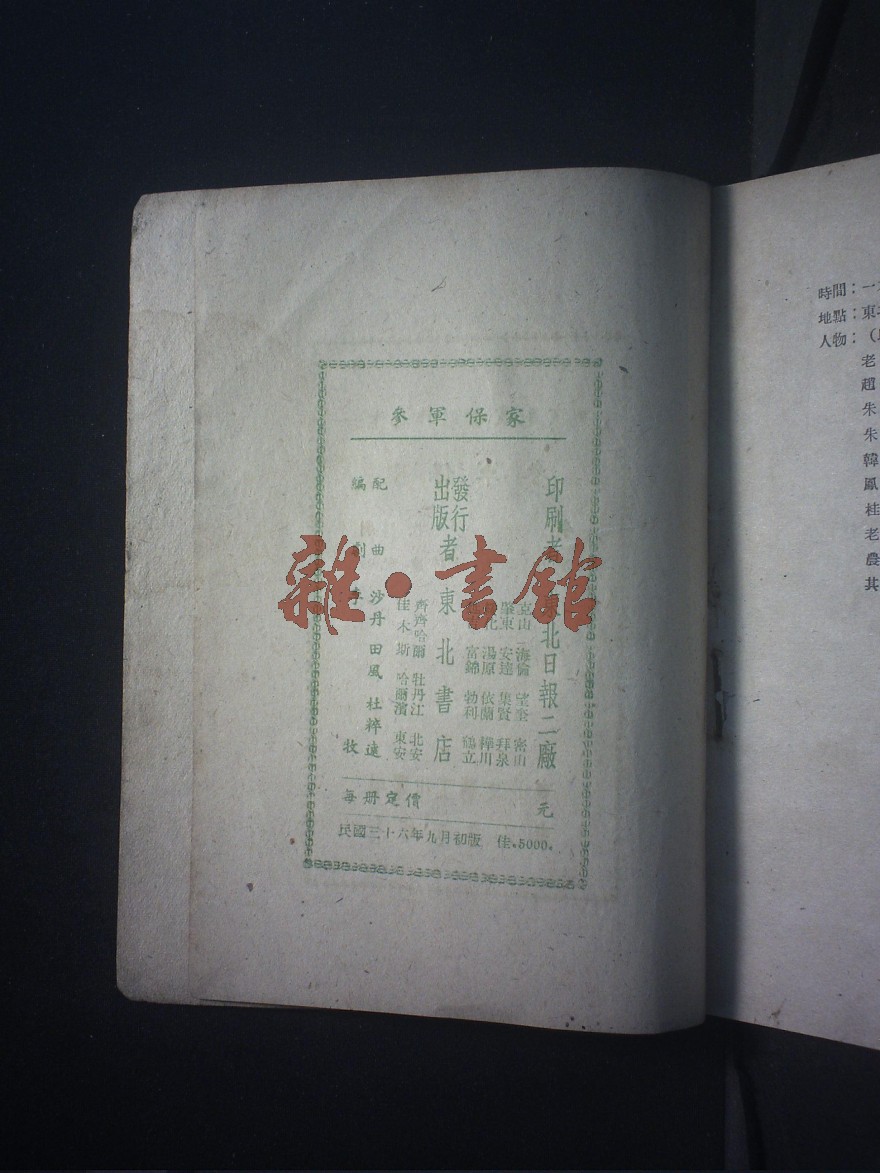 參軍保家
編劇 李牧
配曲 沙丹 田風 杜粹遠
出版
發行者 東北書店
佳木斯 哈爾濱 東安
齊齊哈爾 牡丹江 北安
富錦 勃利 鶴立
湯原 依蘭 樺川
肇東 安達 集賢 拜泉
克山 海倫 望奎 密山
印刷者 東北日報二廠
每册定價 元
民國三十六年九月初版 佳.5000.
雜·書館
時間：一
地點：東
人物：（
老
趙
朱
朱
韓
鳳
桂
老
農
其